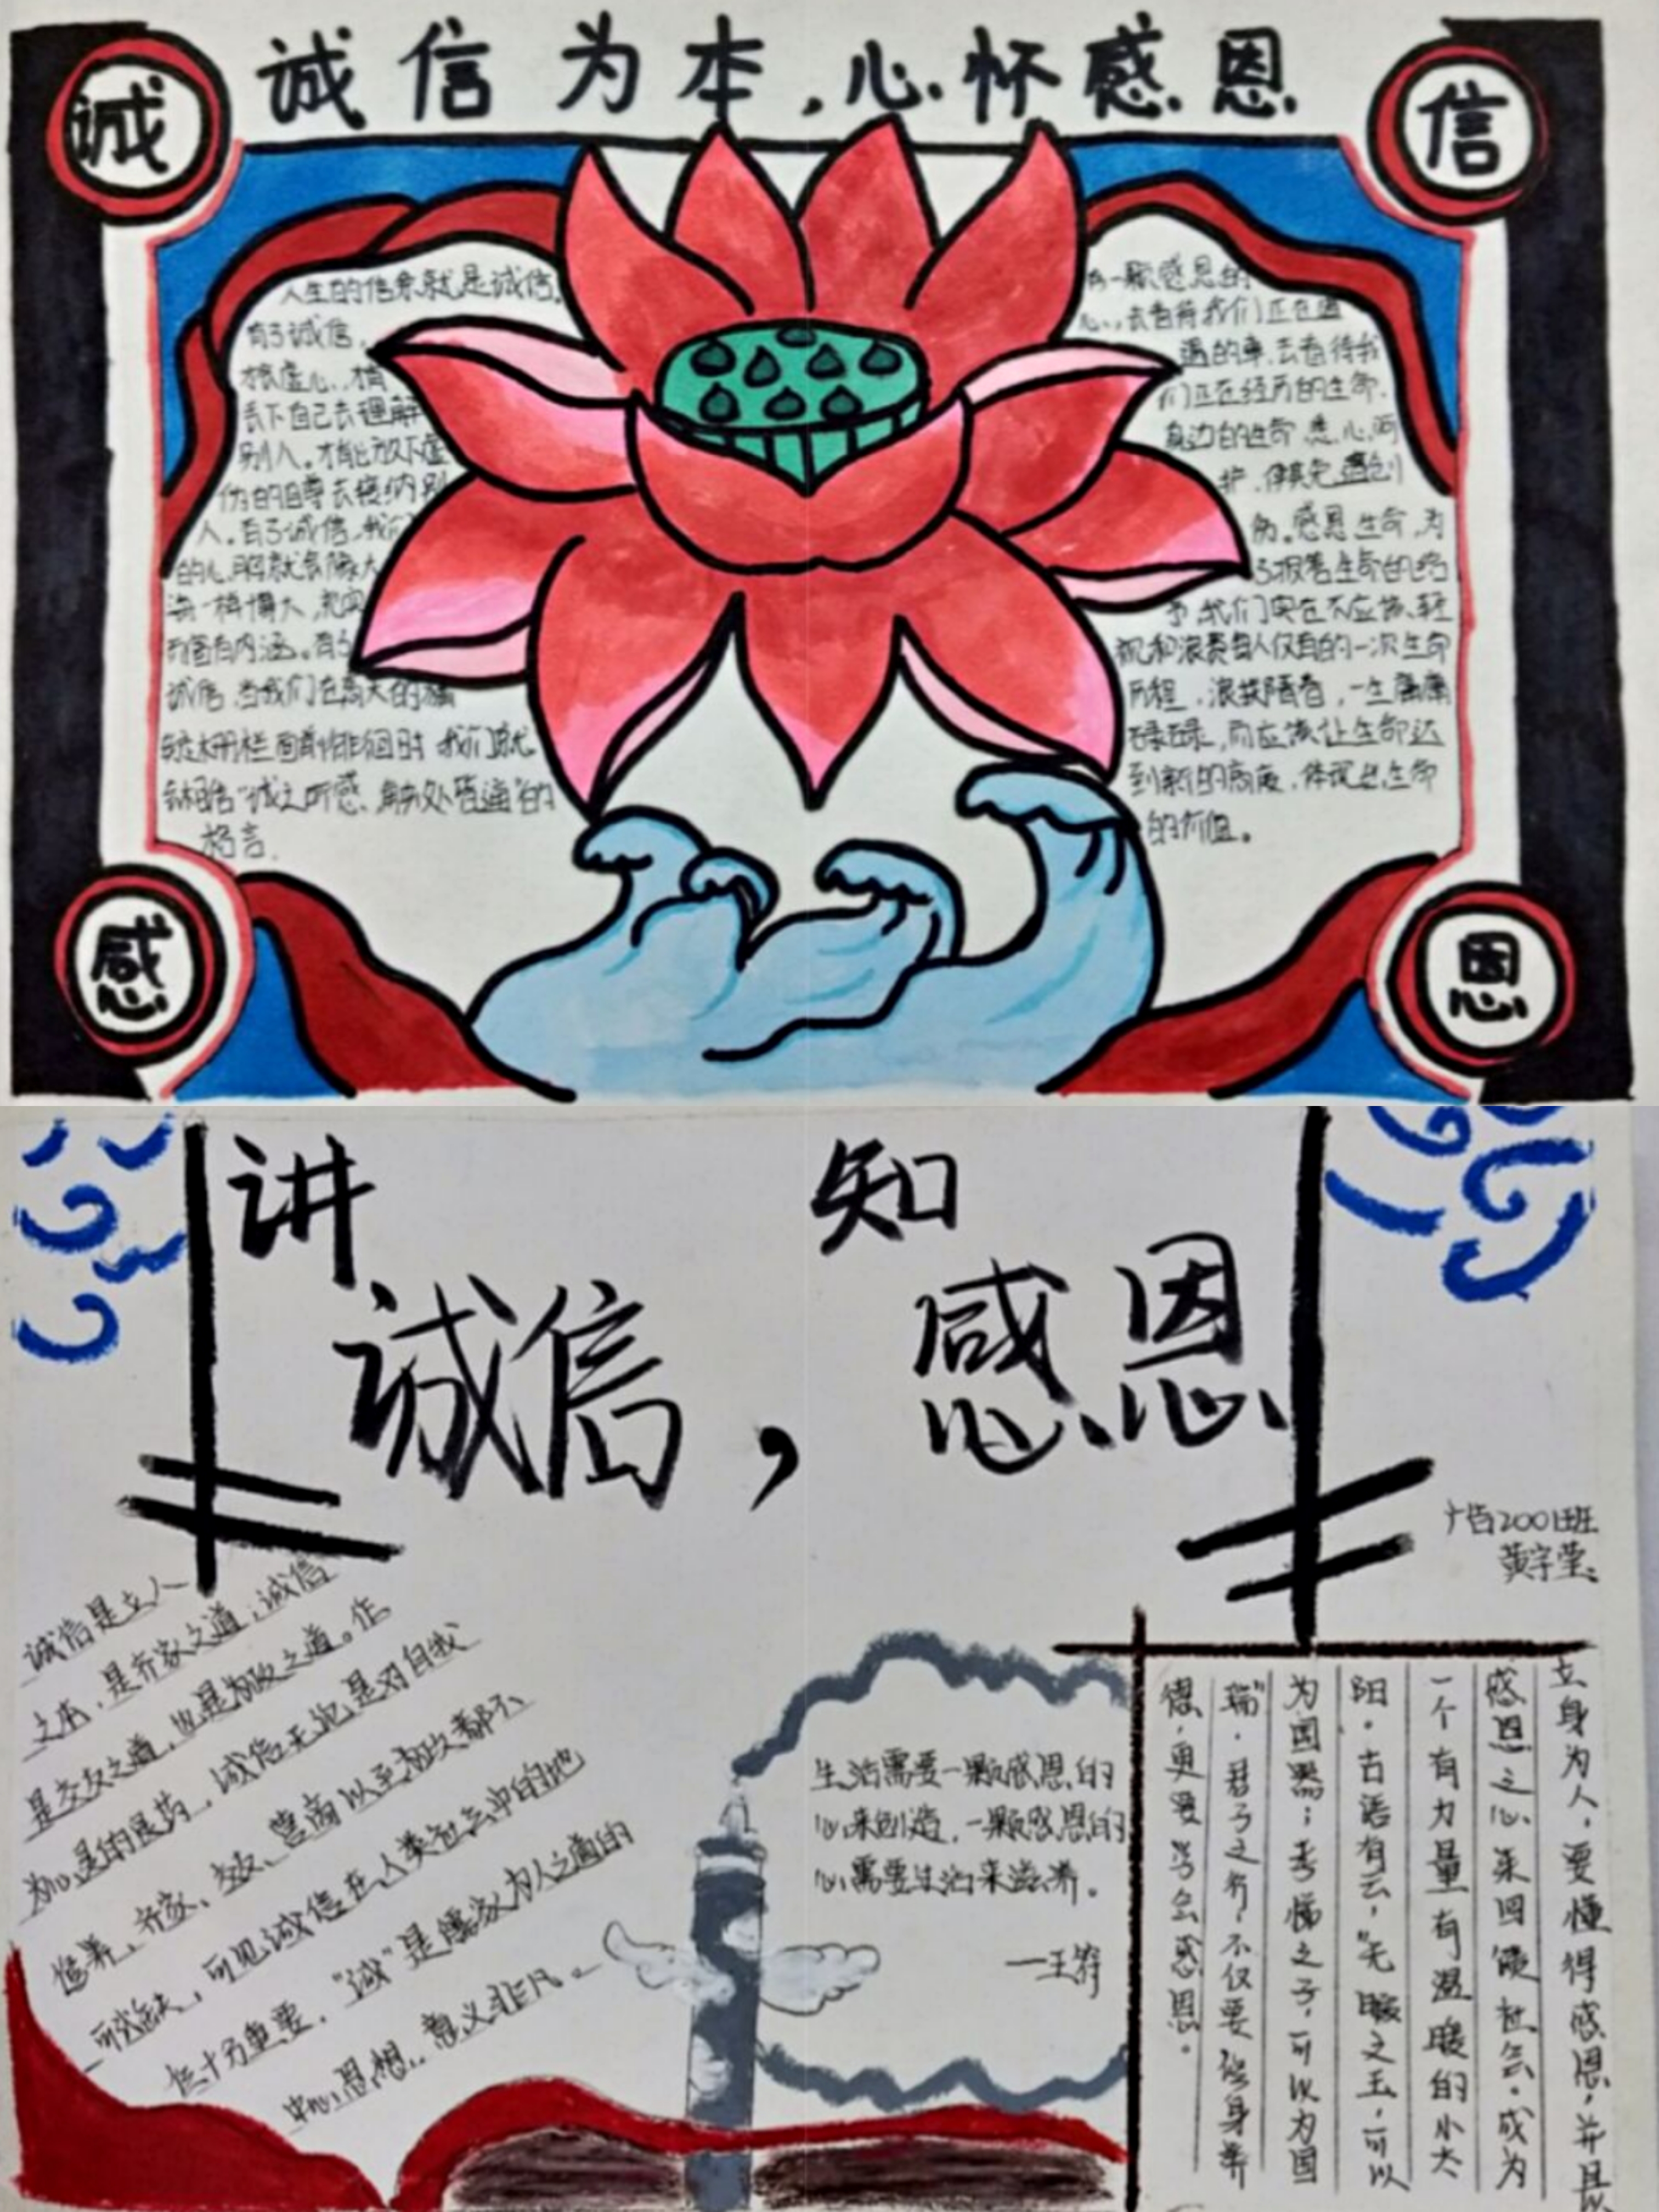 诚信为本，心怀感恩
诚
信
人生的信条就是诚信。
有了诚信，
才能虚心、才
丢下自己去理解
别人。才能放下虚
伪的自尊去接纳别
人。有了诚信，我们
的心胸就会像大
海一样博大，充实
而富有内涵。有了
诚信，当我们在高大的
栅栏面前徘徊时 我们就
会相信“诚之所感，触处皆通”的
格言。
有一颗感恩的
心，去看待我们正在遭
遇的事，去看待我
们正在经历的生命，
身边的生命，悉心呵
护，使其免遭创
伤。感恩生命，为
了报答生命的给
予，我们实在不应该轻
视和浪费每人仅有的一次生命
历程，浪费青春，一生庸庸
碌碌，而应该让生命达
到新的高度，体现出生命
的价值。
感
恩
讲 知
诚信，感恩
广告2001班
黄宇莹
诚信是立人
之本，是齐家之道；诚信
是交友之道，也是为政之道。作
为心灵的良药，诚信无非是对自我
修养、齐家、交友、营商以至为政都不
可或缺，可见诚信在人类社会中的地
位十分重要，“诚”是儒家为人之道的
中心思想，意义非凡。
生活需要一颗感恩的
心来创造，一颗感恩的
心需要生活来滋养。
—王符
立身为人，要懂得感恩，并且以
感恩之心来回馈社会，成为
一个有力量有温暖的小太
阳。古语有云，“无瑕之玉，可以
为国器；孝悌之子，可以为国
瑞”。君子之行，不仅要修身养
德，更要学会感恩。